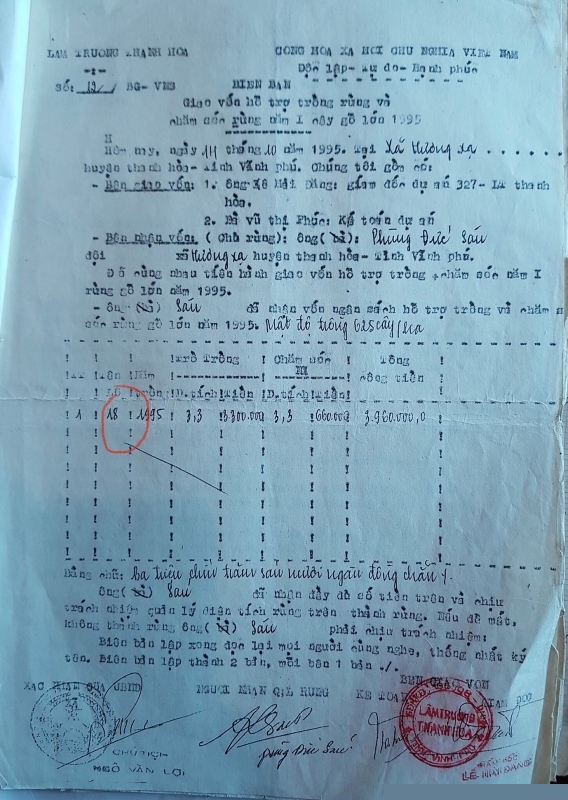 LAM TRUONG THANH HOA CONG HOA XA HOI CHU NGHIA VIET NAM
-:- Độc lập- Tự do- Hạnh phúc
SỐ: 19 / BG-VNS BIEN BAN
Giao vốn hỗ trợ trồng rừng và
chăm sóc rừng năm I cây gỗ lớn 1995
Hôm nay, ngày 14 tháng 10 năm 1995. Tại Xã Hương xạ . . . . . .
huyện thanh hòa- Tỉnh Vĩnh phú. Chúng tôi gồm có:
- Bên giao vốn: 1. Ông Lê Hải Đăng: giám đốc dự án 327- LT thanh
hòa.
2. Bà vũ thị Phúc: Kế toán dự án
- Bên nhận vốn: ( Chủ rừng): ông( bà): Phùng Đức Sáu
đội xã Hương xạ huyện thanh hòa- Tỉnh Vĩnh phú.
Đã cùng nhau tiến hành giao vốn hỗ trợ trồng + chăm sóc năm I
rừng gỗ lớn năm 1995.
- ông (bà) Sáu đã nhận vốn ngân sách hỗ trợ trồng và chăm s
sóc rừng gỗ lớn năm 1995. Mật độ trồng 625 cây/ha
! ! ! Năm ! Trồ Trồng ! Chăm sóc ! Tổng
!TT !Tên !Năm ! NI ! cộng tiền
! ! Lô !trồng!D.tích!Tiền !D.tích!Tiền!
! 1 ! 18 ! 1995 ! 3,3 !3300.000 3,3 !660.000 3.960.000,0 !
Bằng chữ: Ba triệu chín trăm sáu mươi ngàn đồng chẵn ./.
ông( bà) Sáu đã nhận đầy đủ số tiền trên và chịu
trách nhiệm quản lý diện tích rừng trên thành rừng. Nếu để mất,
không thành rừng ông( bà) Sáu phải chịu trách nhiệm:
Biên bản lập xong đọc lại mọi người cùng nghe, thống nhất ký
tên. Biên bản lập thành 2 bản, mỗi bên 1 bản ./.
BEN GIAO VON
XAC NHAN CUA UBND NGUOI NHAN QLR RUNG KE TOAN GIAM DOC
LÂM TRƯỜNG
THANH HÒA
CHỦ TỊCH
NGÔ VĂN LỢI
phùng Đức Sáu
GIÁM ĐỐC
LÊ HẢI ĐĂNG